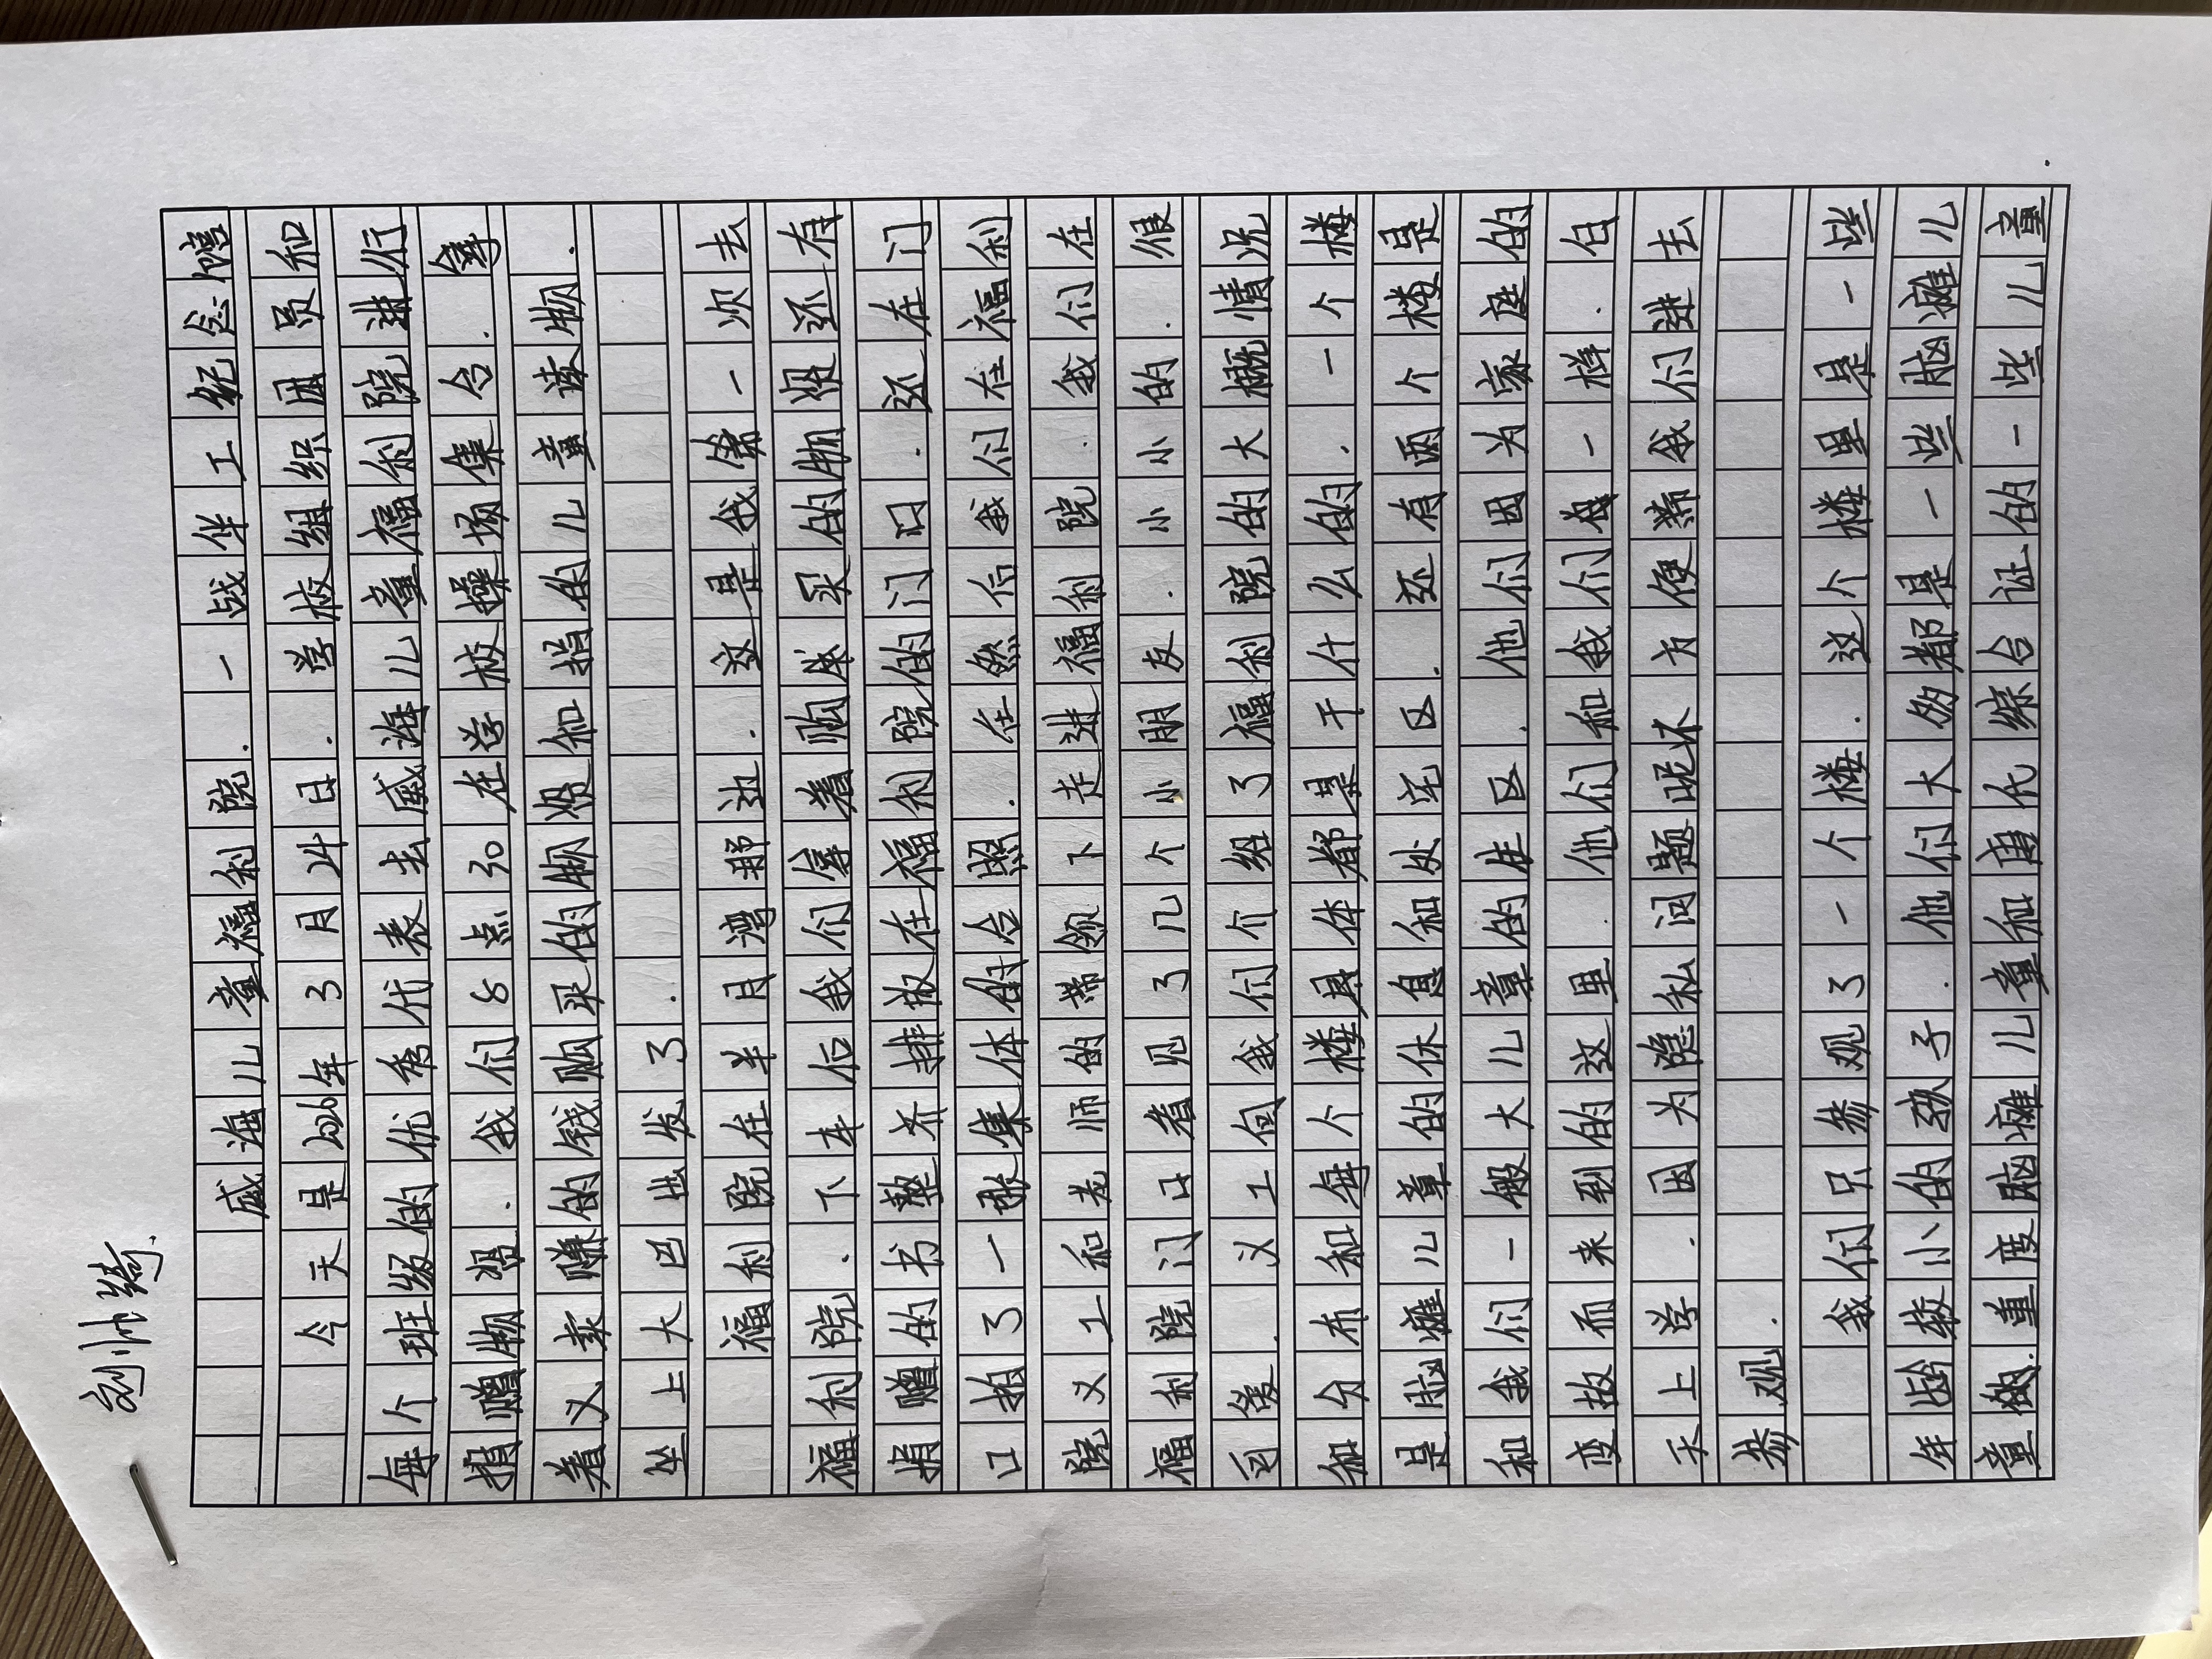 刘帅绮.
威海儿童福利院.一战华工纪念馆
今天是2026年3月24日.学校组织团员和
每个班级的优秀代表去威海儿童福利院进行
捐赠物资.我们8点30在学校操场集合.拿
着义卖赚的钱购买的物资和捐的儿童读物.
坐上大巴出发了.
福利院在半月湾那边.这是我第一次去
福利院.下车后我们拿着购买的物资还有
捐赠的书整齐排放在福利院的门口.还在门
口拍了一张集体的合照.在然后我们在福利
院义工和老师的带领下走进福利院.我们在
福利院门口看见了几个小朋友.小小的.很
可爱.义工向我们介绍了福利院的大概情况
和分布和每个楼具体都是干什么的.一个楼
是脑瘫儿童的休息和处宅区.还有两个楼是
和我们一般大儿童的住区.他们因为家庭的
变故而来到的这里.他们和我们为一样.白
天上学.因为隐私问题呢不方便带我们进去
参观.
我们只参观了一个楼.这个楼里是一些
年龄较小的孩子.他们大多都是一些脑瘫儿
童做.重度脑瘫儿童和唐代综合证的一些儿童